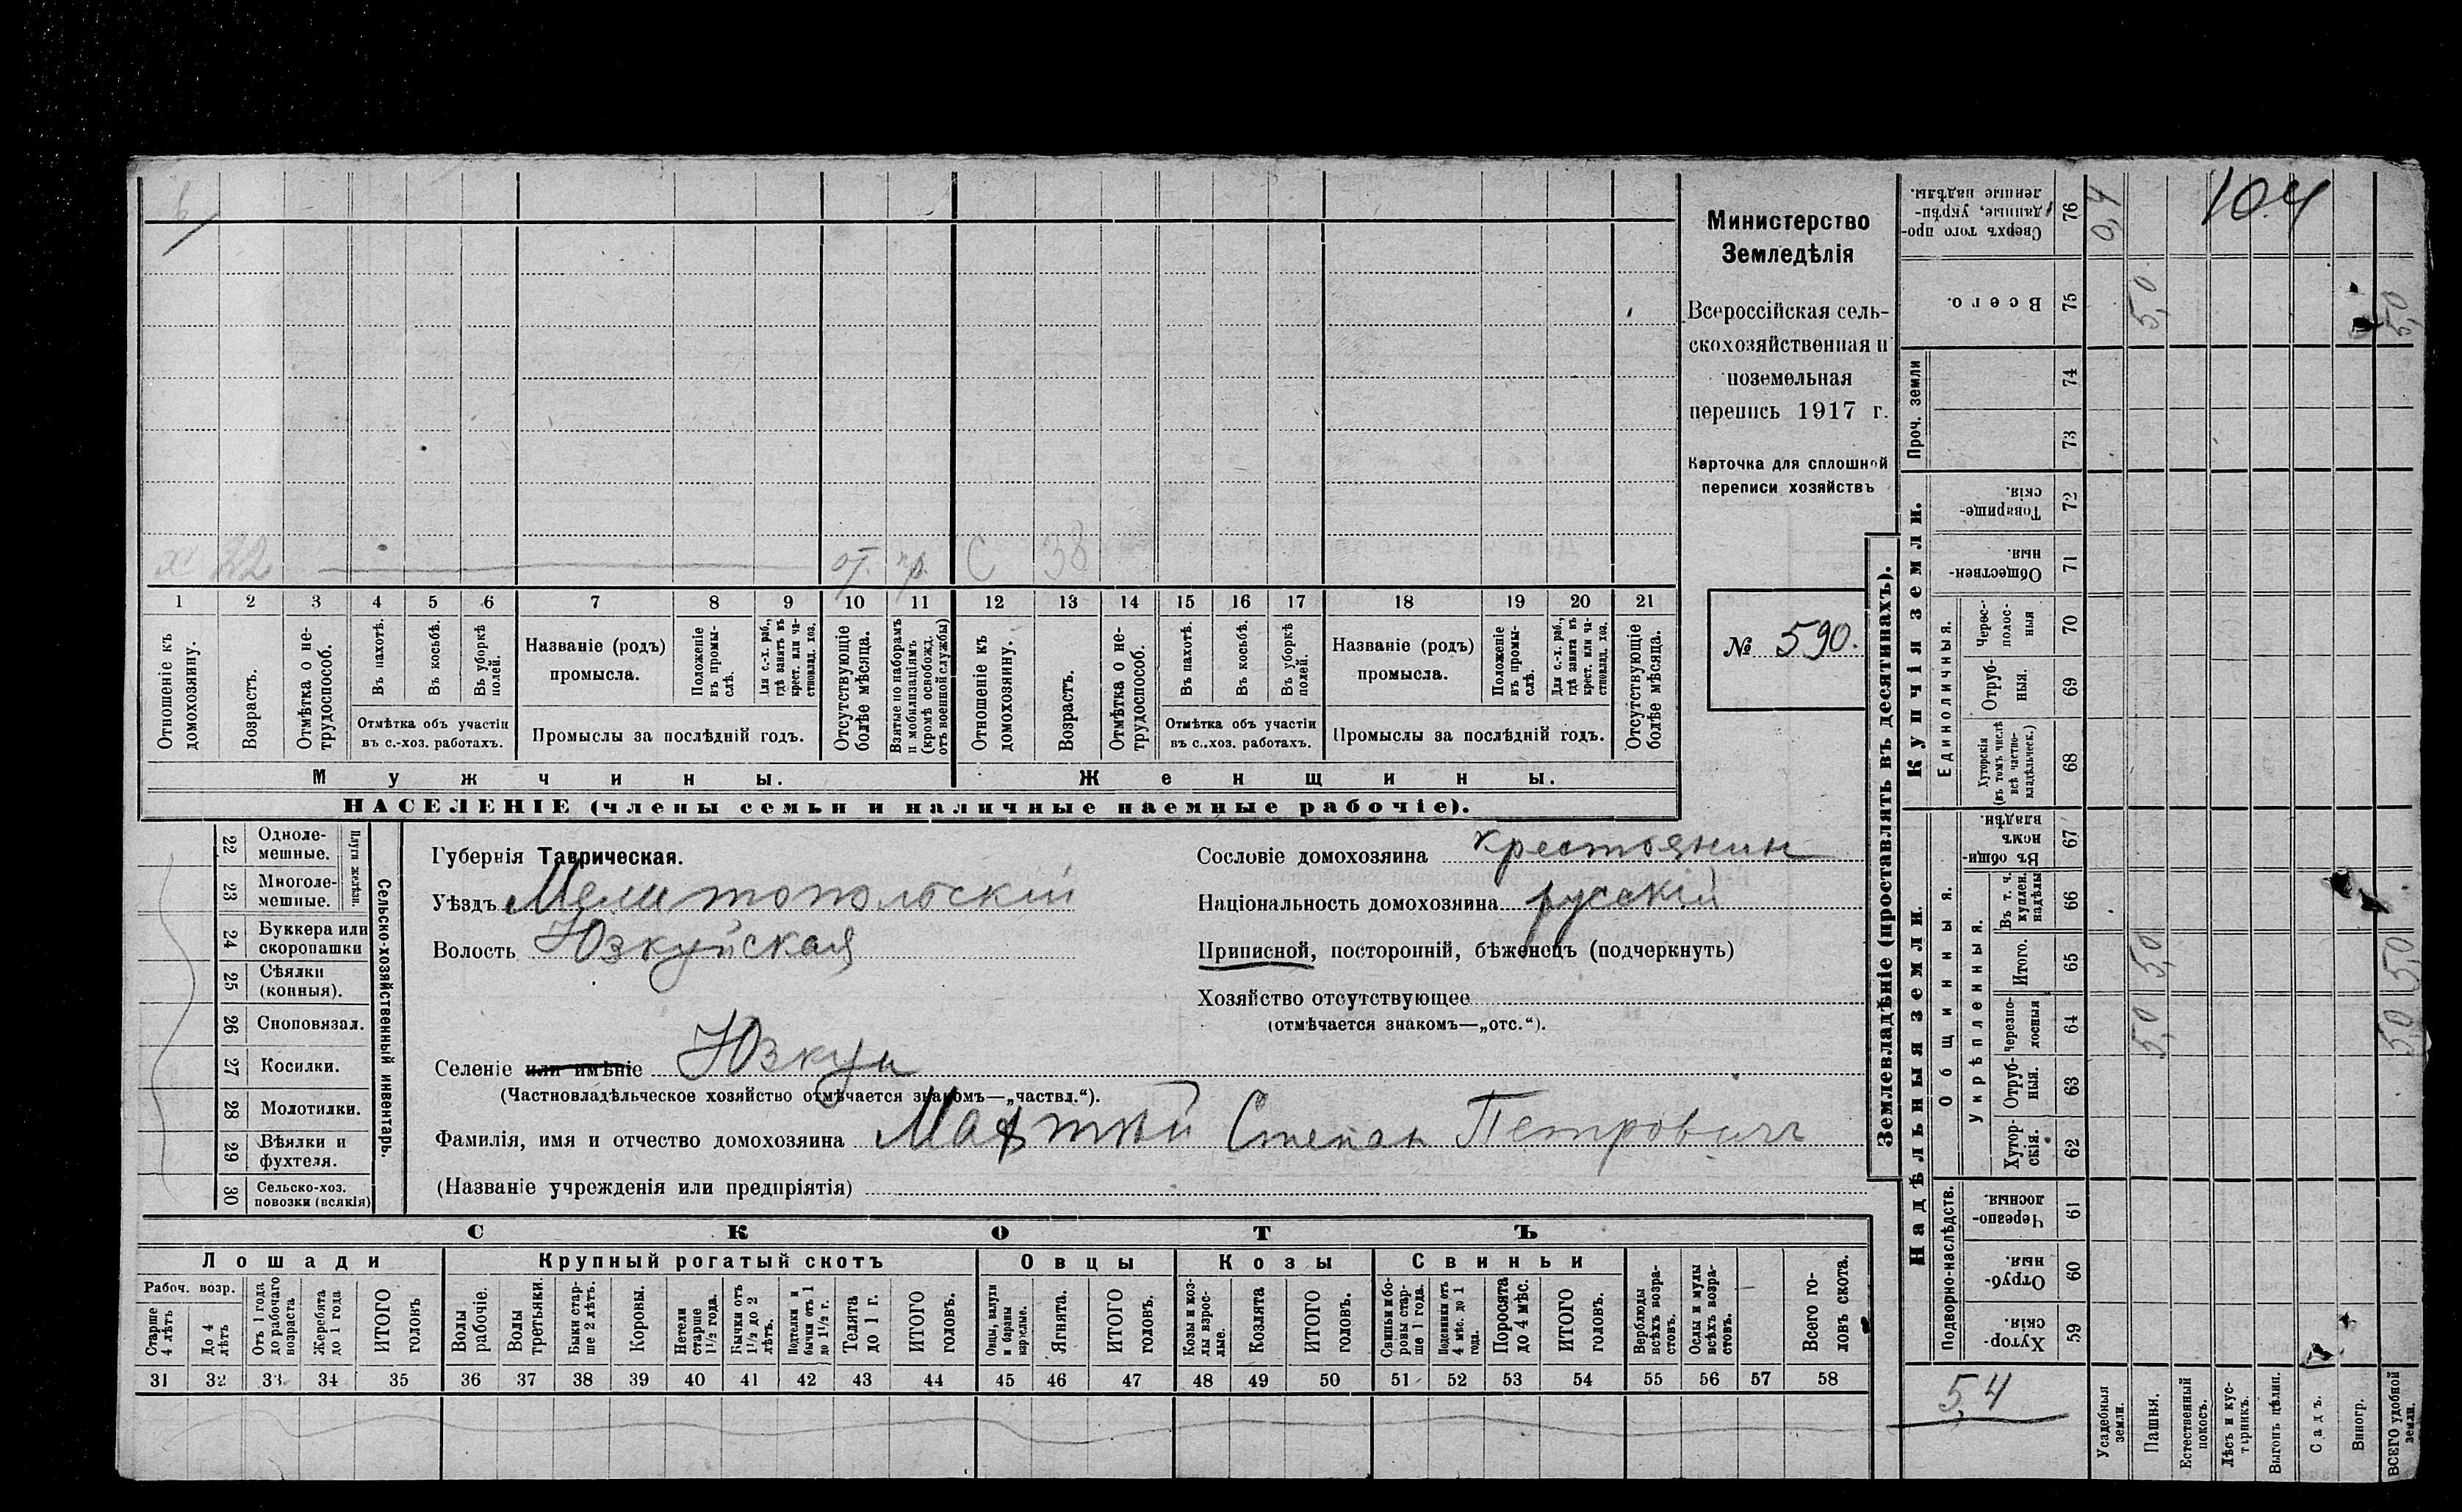 104
Министерство
Земледѣлія
Всероссійская сель-
скохозяйственная и
поземельная
перепись 1917 г.
Карточка для сплошной
переписи хозяйствъ
№ 590.
х. 22 от. пр. С 38
1 2 3 4 5 6 7 8 9 10 11 12 13 14 15 16 17 18 19 20 21
Отношеніе къ домохозяину.
Возрастъ.
Отмѣтка о не-трудоспособ.
Въ пахотѣ.
Въ косьбѣ.
Въ уборкѣ полей.
Отмѣтка объ участіи
въ с.-хоз. работахъ.
Названіе (родъ)
промысла.
Положеніе въ промы-слѣ.
Для с.-х. раб., гдѣ занятъ въ крест. или ча-стновлад. хоз.
Промыслы за послѣдній годъ.
Отсутствующіе болѣе мѣсяца.
Взятые по наборамъ и мобилизаціямъ (кромѣ освобожд. отъ военной службы)
Отношеніе къ домохозяину.
Возрастъ.
Отмѣтка о не-трудоспособ.
Въ пахотѣ.
Въ косьбѣ.
Въ уборкѣ полей.
Отмѣтка объ участіи
въ с.-хоз. работахъ.
Названіе (родъ)
промысла.
Положеніе въ промы-слѣ.
Для с.-х. раб., гдѣ занята въ крест. или ча-стновлад. хоз.
Промыслы за послѣдній годъ.
Отсутствующіе болѣе мѣсяца.
Мужчины.
Женщины.
НАСЕЛЕНІЕ (члены семьи и наличные наемные рабочіе).
Сельско-хозяйственный инвентарь.
Плуги желѣзн.
22 Одноле-мешные.
23 Многоле-мешные.
24 Буккера или скоропашки
25 Сѣялки (конныя).
26 Сноповязал.
27 Косилки.
28 Молотилки.
29 Вѣялки и фухтеля.
30 Сельско-хоз. повозки (всякія)
Губернія Таврическая.
Уѣздъ Мелитопольскій
Волость Юзкуйская
Селеніе или имѣніе Юзкуи
(Частновладѣльческое хозяйство отмѣчается знакомъ—„частвл.“).
Сословіе домохозяина крестоянин
Національность домохозяина русскій
Приписной, посторонній, бѣженецъ (подчеркнуть)
Хозяйство отсутствующее
(отмѣчается знакомъ—„отс.“).
Фамилія, имя и отчество домохозяина Степан Петровичъ
(Названіе учрежденія или предпріятія)
СКОТЪ
Лошади
Крупный рогатый скотъ
Овцы
Козы
Свиньи
Рабоч. возр.
Старше 4 лѣтъ
До 4 лѣтъ
Отъ 1 года до рабочаго возраста
Жеребята до 1 года
ИТОГО головъ
Волы рабочіе.
Волы третьяки.
Быки стар-ше 2 лѣтъ.
Коровы.
Нетели старше 1½ года.
Бычки отъ 1½ до 2 лѣтъ.
Подтелки и бычки отъ 1 до 1½ г.
Телята до 1 г.
ИТОГО головъ.
Овцы, валухи и бараны взрослые.
Ягнята.
ИТОГО головъ.
Козы и коз-лы взрос-лые.
Козлята
ИТОГО головъ.
Свиньи и бо-ровы стар-ше 1 года.
Подсвинки отъ 4 мѣс. до 1 года.
Поросята до 4 мѣс.
ИТОГО головъ.
Верблюды всѣхъ возра-стовъ.
Ослы и мулы всѣхъ возра-стовъ.
Всего го-ловъ скота.
31 32 33 34 35 36 37 38 39 40 41 42 43 44 45 46 47 48 49 50 51 52 53 54 55 56 57 58
Землевладѣніе (проставлять въ десятинахъ).
Купчія земли.
Надѣльныя земли.
Проч. земли
Единоличныя.
Общинныя.
Укрѣпленныя.
Подворно-наслѣдств.
Сверхъ того про-данные, укрѣп-ленные надѣлы. 76 0,4
Всего. 75 5,0 5,0
74
73
Товарище-скія. 72
Обществен-ныя. 71
Черес-полос-ныя 70
Отруб-ныя. 69
Хуторскія (въ томъ числѣ всѣ частно-владѣльческ.) 68
Въ общи-номъ владѣн. 67
Въ т. ч. куплен. надѣлы 66
Итого. 65 5,0 5,0
Черезпо-лосныя 64 5,0 5,0
Отруб-ныя. 63
Хутор-скія. 62
Черезпо-лосныя. 61
Отруб-ныя. 60
Хутор-скія. 59
5,4
Усадебныя земли.
Пашня.
Естественный покосъ.
Лѣсъ и кус-тарникъ.
Выгонъ цѣлин.
Садъ.
Виногр.
ВСЕГО удобной земли.